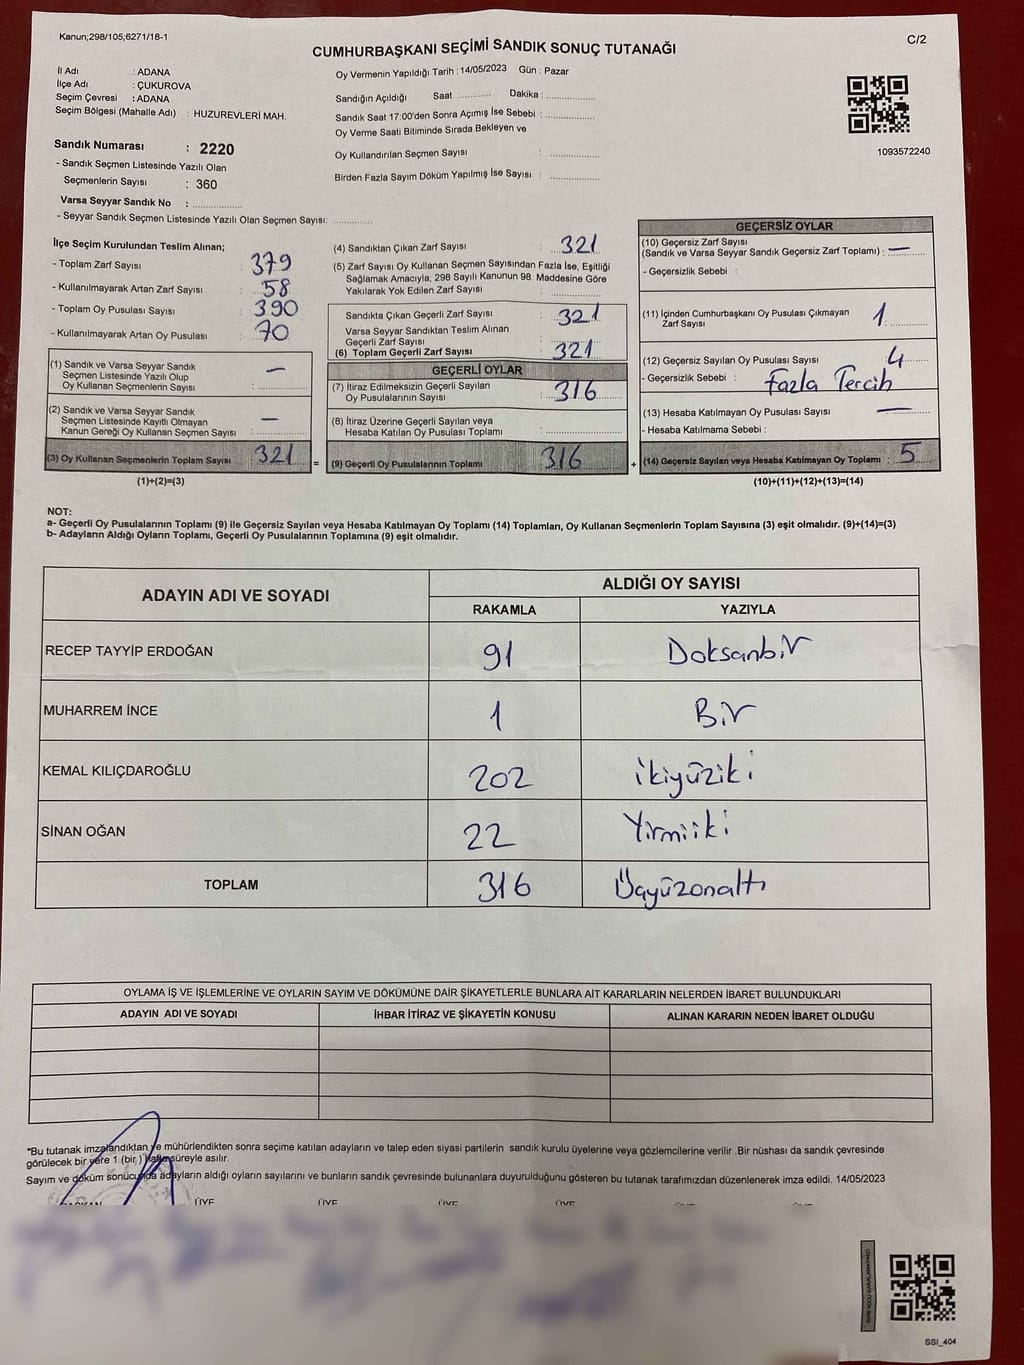 Kanun;298/105;6271/18-1
C/2
CUMHURBAŞKANI SEÇİMİ SANDIK SONUÇ TUTANAĞI
İl Adı : ADANA
İlçe Adı : ÇUKUROVA
Seçim Çevresi : ADANA
Seçim Bölgesi (Mahalle Adı) : HUZUREVLERİ MAH.
Sandık Numarası : 2220
- Sandık Seçmen Listesinde Yazılı Olan
Seçmenlerin Sayısı : 360
Varsa Seyyar Sandık No :
- Seyyar Sandık Seçmen Listesinde Yazılı Olan Seçmen Sayısı:
Oy Vermenin Yapıldığı Tarih : 14/05/2023 Gün : Pazar
Sandığın Açıldığı Saat : Dakika :
Sandık Saat 17:00'den Sonra Açımış İse Sebebi :
Oy Verme Saati Bitiminde Sırada Bekleyen ve
Oy Kullandırılan Seçmen Sayısı :
Birden Fazla Sayım Döküm Yapılmış İse Sayısı :
1093572240
İlçe Seçim Kurulundan Teslim Alınan;
- Toplam Zarf Sayısı : 379
- Kullanılmayarak Artan Zarf Sayısı : 58
- Toplam Oy Pusulası Sayısı : 390
- Kullanılmayarak Artan Oy Pusulası : 70
(1) Sandık ve Varsa Seyyar Sandık
Seçmen Listesinde Yazılı Olup
Oy Kullanan Seçmenlerin Sayısı : —
(2) Sandık ve Varsa Seyyar Sandık
Seçmen Listesinde Kayıtlı Olmayan
Kanun Gereği Oy Kullanan Seçmen Sayısı : —
(3) Oy Kullanan Seçmenlerin Toplam Sayısı : 321
(1)+(2)=(3)
(4) Sandıktan Çıkan Zarf Sayısı : 321
(5) Zarf Sayısı Oy Kullanan Seçmen Sayısından Fazla İse, Eşitliği
Sağlamak Amacıyla; 298 Sayılı Kanunun 98. Maddesine Göre
Yakılarak Yok Edilen Zarf Sayısı :
Sandıkta Çıkan Geçerli Zarf Sayısı : 321
Varsa Seyyar Sandıktan Teslim Alınan
Geçerli Zarf Sayısı :
(6) Toplam Geçerli Zarf Sayısı : 321
GEÇERLİ OYLAR
(7) İtiraz Edilmeksizin Geçerli Sayılan
Oy Pusulalarının Sayısı : 316
(8) İtiraz Üzerine Geçerli Sayılan veya
Hesaba Katılan Oy Pusulası Toplamı :
= (9) Geçerli Oy Pusulalarının Toplamı : 316
GEÇERSİZ OYLAR
(10) Geçersiz Zarf Sayısı
(Sandık ve Varsa Seyyar Sandık Geçersiz Zarf Toplamı) : —
- Geçersizlik Sebebi :
(11) İçinden Cumhurbaşkanı Oy Pusulası Çıkmayan
Zarf Sayısı : 1
(12) Geçersiz Sayılan Oy Pusulası Sayısı : 4
- Geçersizlik Sebebi : Fazla Tercih
(13) Hesaba Katılmayan Oy Pusulası Sayısı : —
- Hesaba Katılmama Sebebi :
+ (14) Geçersiz Sayılan veya Hesaba Katılmayan Oy Toplamı : 5
(10)+(11)+(12)+(13)=(14)
NOT:
a- Geçerli Oy Pusulalarının Toplamı (9) ile Geçersiz Sayılan veya Hesaba Katılmayan Oy Toplamı (14) Toplamları, Oy Kullanan Seçmenlerin Toplam Sayısına (3) eşit olmalıdır. (9)+(14)=(3)
b- Adayların Aldığı Oyların Toplamı, Geçerli Oy Pusulalarının Toplamına (9) eşit olmalıdır.
ADAYIN ADI VE SOYADI
ALDIĞI OY SAYISI
RAKAMLA YAZIYLA
RECEP TAYYİP ERDOĞAN 91 Doksanbir
MUHARREM İNCE 1 Bir
KEMAL KILIÇDAROĞLU 202 ikiyüziki
SİNAN OĞAN 22 Yirmiiki
TOPLAM 316 Üçyüzonaltı
OYLAMA İŞ VE İŞLEMLERİNE VE OYLARIN SAYIM VE DÖKÜMÜNE DAİR ŞİKAYETLERLE BUNLARA AİT KARARLARIN NELERDEN İBARET BULUNDUKLARI
ADAYIN ADI VE SOYADI İHBAR İTİRAZ VE ŞİKAYETİN KONUSU ALINAN KARARIN NEDEN İBARET OLDUĞU
*Bu tutanak imzalandıktan ve mühürlendikten sonra seçime katılan adayların ve talep eden siyasi partilerin sandık kurulu üyelerine veya gözlemcilerine verilir .Bir nüshası da sandık çevresinde
görülecek bir yere 1 (bir ) hafta süreyle asılır.
Sayım ve döküm sonucunda adayların aldığı oyların sayılarını ve bunların sandık çevresinde bulunanlara duyurulduğunu gösteren bu tutanak tarafımızdan düzenlenerek imza edildi. 14/05/2023
BAŞKAN ÜYE ÜYE ÜYE ÜYE
SSI_404